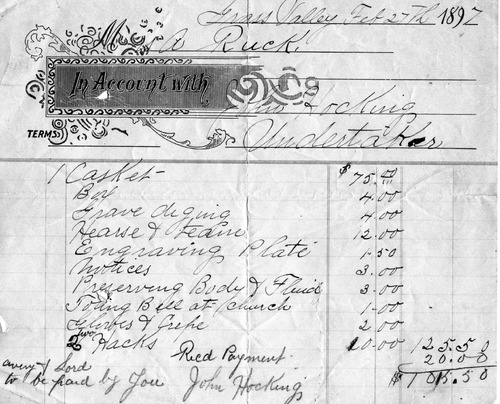 Grass Valley Feb 27th 1897
M
A Ruck.
In Account with
John Hocking
TERMS:
Undertaker
1 Casket $75.00
Box 4.00
Grave diging 4.00
Hearse & Team 12.00
Engraving Plate 1.50
Notices 3.00
Preserving Body & Fluid 3.00
Toling Bell at Church 1.00
Gloves & Crepe 2.00
2 two Hacks 20.00 125.50
20.00
$105.50
Recd Payment
Avery & Lord
to be paid by You John Hocking